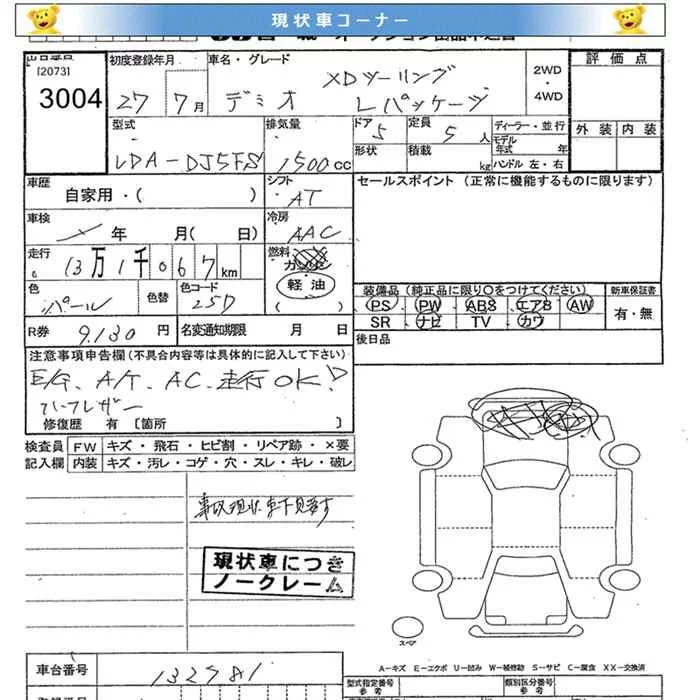 現状車コーナー
[2073]
3004
初度登録年月
27 7月
車名・グレード
デミオ
XDツーリング
Lパッケージ
2WD
・
4WD
評価点
外装 内装
型式
LDA-DJ5FS
排気量
1500cc
ドア 5
定員 5人
形状
積載 kg
ディーラー・並行
モデル
年式 年
ハンドル 左・右
車歴
自家用・( )
シフト
AT
セールスポイント (正常に機能するものに限ります)
車検
年 月( 日)
冷房
AAC
走行
13万1千067km
燃料
軽油
( )
色
パール
色替
色コード
25D
装備品 (純正品に限り○をつけてください)
PS PW ABS エアB AW
SR ナビ TV カワ
新車保証書
有・無
R券 9,130円
名変通知期限 月 日
後日品
注意事項申告欄(不具合内容等は具体的に記入して下さい)
E/G、A/T、AC、走行OK!
ハーフレザー
修復歴 有 〔箇所 〕
検査員
記入欄
FW キズ・飛石・ヒビ割・リペア跡・×要
内装 キズ・汚レ・コゲ・穴・スレ・キレ・破レ
事故現状車下見要す
現状車につき
ノークレーム
スペア
A−キズ E−エクボ U−凹み W−補修跡 S−サビ C−腐食 XX−交換済
車台番号
132981
型式指定番号
参考
類別区分番号
参考